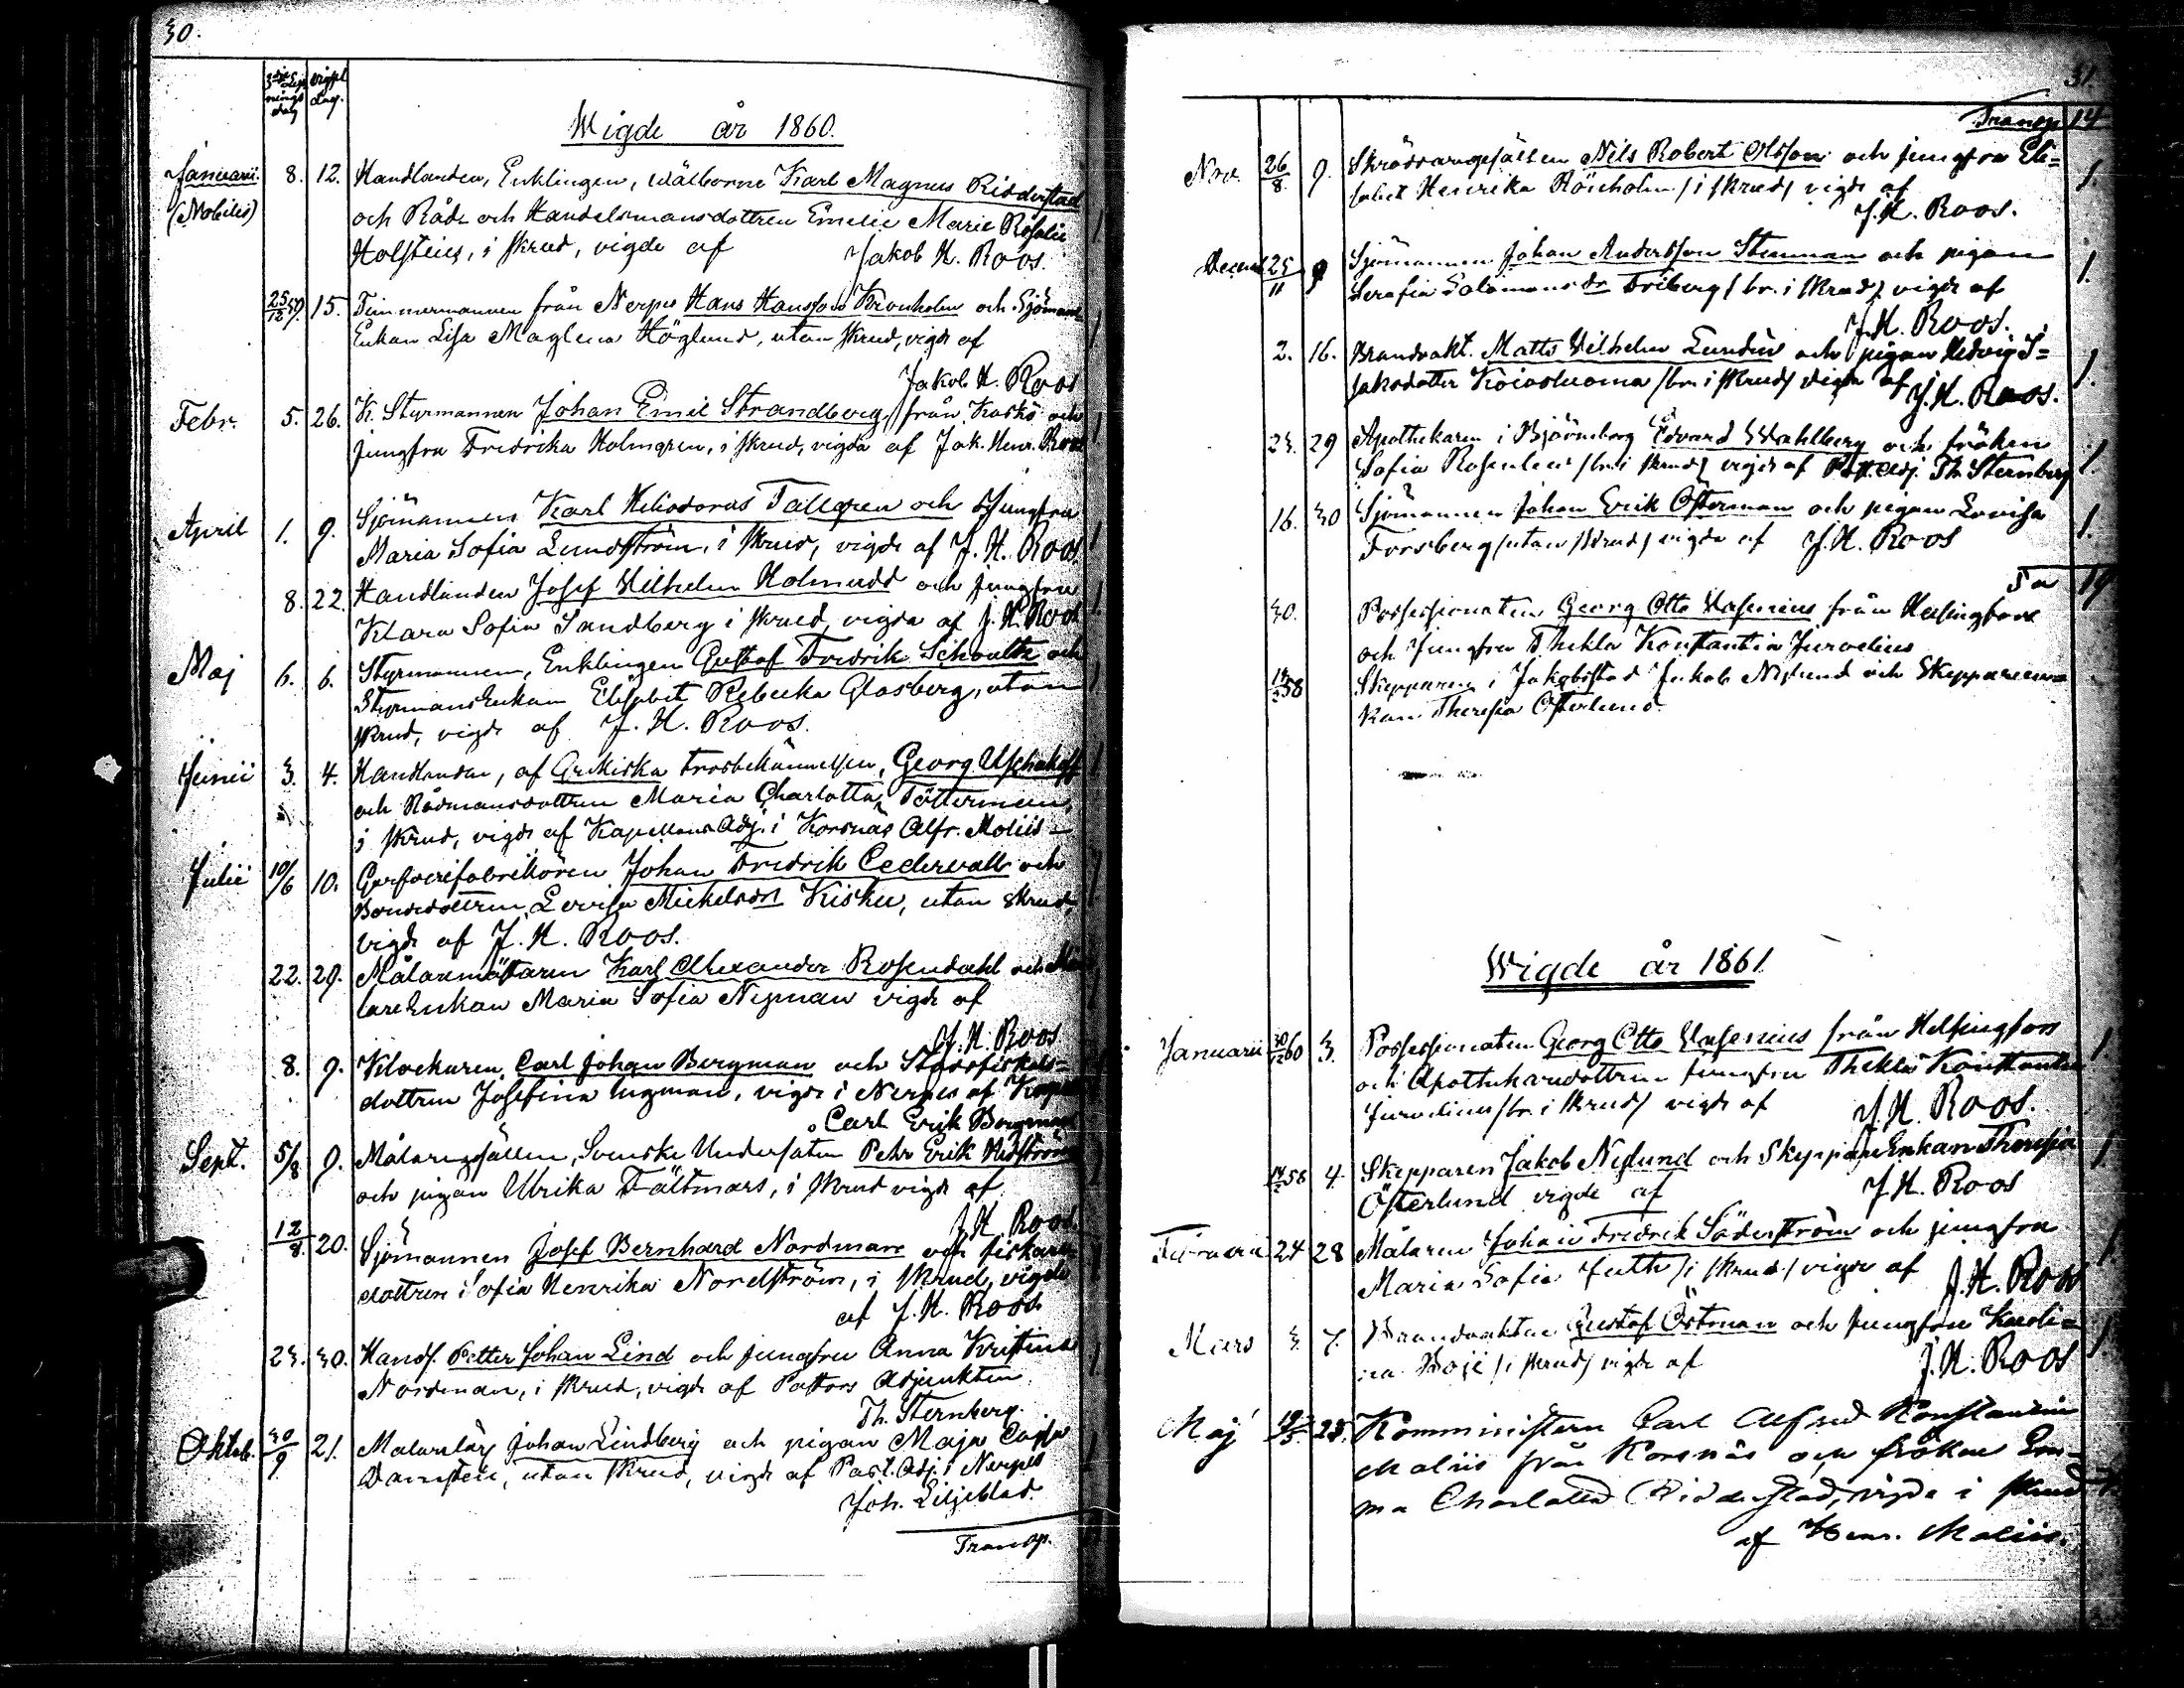 30.
3dje Lysningsdag
Vigsel dag.
Wigde år 1860.
Januarii. 8. 12. Handlanden, Enklingen, Wälborne Karl Magnus Ridderstad
(Nobilis) och Råds och Handelsmansdottren Emelie Marie Rosalie
Holsteus, i skrud, vigde af Jakob H. Roos.
25/12 59. 15. Timmermannen från Nerpes Hans Hansson Kronholm och Sjömans
Enkan Lisa Maglena Höglund, utan skrud, vigde af
Jakob H. Roos
Febr. 5. 26. K. Styrmannen Johan Emil Strandberg, från Kaskö och
jungfru Fredrika Holmgren, i skrud, vigda af Jak. Henr. Roos
April 1. 9. Sjömannen Karl Heliodorus Tallgren och Jungfru
Maria Sofia Lundström, i skrud, vigde af J. H. Roos.
8. 22. Handlanden Josef Wilhelm Holmudd och jungfru
Klara Sofia Sandberg i skrud vigda af J. H. Roos
Maj 6. 6. Styrmannen, Enklingen Gustaf Fredrik Schoultz och
StyrmansEnkan Elisabet Rebecka Glasberg, utan
skrud, vigde af J. H. Roos.
Junii 3. 4. Handlanden, af Grekiska trosbekännelsen, Georg Uschakoff
och Rådmansdottren Maria Charlotta Tötterman,
i skrud, vigde af Kapellans Adj. i Korsnäs Alfr. Moliis
Julii 10/6 10. Garfverifabrikören Johan Fredrik Cedervall och
Bondedottren Lovisa Mickelsdr Kisku, utan skrud,
vigde af J. H. Roos.
22. 29. Målaremästaren Karl Alexander Rosendahl och Må
lareEnkan Maria Sofia Nyman vigde af
J. H. Roos
8. 9. Klockaren Carl Johan Bergman och Stadsfiskals-
dottren Josefina Ingman, vigde i Nerpes af Kapell
Carl Erik Bergman
Sept. 5/8 9. Målaregesällen, Svenske Undersåten Pehr Erik Hidström
och pigan Ulrika Fältmars, i skrud vigde af
J. H. Roos.
12/8. 20. Sjömannen Josef Bernhard Nordman och fiskare
dottren Sofia Henrika Nordström, i skrud, vigde
af J. H. Roos
23. 30. Handl. Petter Johan Lind och jungfru Anna Kristina
Nordman, i skrud, vigde af Pastors Adjunkten
Th. Sternberg.
Oktob. 30/9 21. Målarelärl Johan Lindberg och pigan Maja Cajsa
Damsten, utan skrud, vigde af Past. Adj. i Nerpes
Joh. Liljeblad.
Transp.
31.
Transp 14
Nov. 26/8. 9. Skräddaregesällen Nils Robert Olsson och jungfru Eli=
sabet Henrika Rönholm /i skrud/ vigde af 1.
J. H. Roos.
Decemb 25/11 9 Sjömannen Johan Andersson Stenman och pigan
Serafia Salomonsdr Friberg / br. i skrud / vigde af 1.
J. H. Roos.
2. 16. Brandvakt. Matts Wilhelm Lundin och pigan Hedvig I=
saksdotter Koivoluoma /br. i skrud/ vigde af J. H. Roos. 1.
23. 29 Apothekaren i Björneborg Edvard Wahlberg och fröken
Sofia Rosenlew /br. i skrud/ vigde af Past. Adj. Th Sternberg 1.
16. 30 Sjömannen Johan Erik Österman och pigan Lovisa
Forsberg /utan skrud/ vigde af J. H. Roos 1.
Sa 19
30. Possessionaten Georg Otto Wasenius från Helsingfors
och Jungfru Thekla Konstantia Jurvelius
14/2 58 Skepparen i Jakobstad Jakob Nylund och Skeppareen=
kan Theresia Österlund.
Wigde år 1861.
Januarii 30/12 60 3. Possessionaten Georg Otto Wasenius från Helsingfors
och Apothekaredottren jungfru Thekla Konstantia
Jurvelius /br. i skrud/ vigde af J. H. Roos. 1.
14/2 58 4. Skepparen Jakob Nylund och SkeppareEnkan Theresia
Österlund vigde af J. H. Roos 1.
Februarii 24 28 Målaren Johan Fredrik Söderström och jungfru
Maria Sofia Juth /i skrud/ vigde af J. H. Roos 1.
Mars 3 7. Brandvakten Gustaf Östman och Jungfru Karoli=
na Boje /i skrud/ vigde af J. H. Roos 1.
Maj 19/5. 28. Komministern Carl Alfred Konstantin
Moliis från Korsnäs och fröken Em-
ma Charlotta Ridderstad, vigda i skrud 1.
af Henr. Moliis.